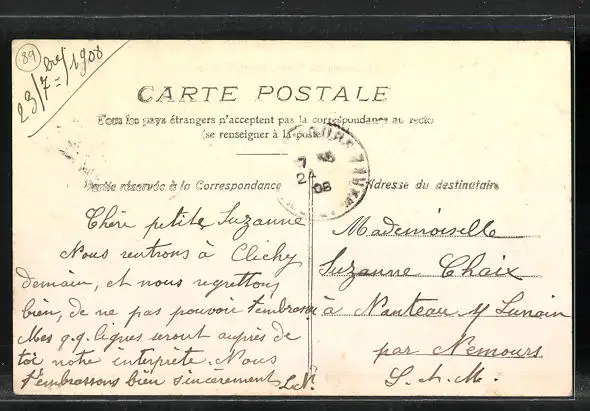 89
23/7bre/1908
CARTE POSTALE
Tous les pays étrangers n'acceptent pas la correspondance au recto
(se renseigner à la poste)
Partie réservée à la Correspondance
Adresse du destinataire
7
24
08
Chère petite Suzanne
Nous rentrons à Clichy
demain, et nous regrettons
bien, de ne pas pouvoir t'embrasser
Mes q.q. lignes seront auprès de
toi notre interprète. Nous
t'embrassons bien sincèrement
Mademoiselle
Suzanne Chaix
à Nanteau s/ Lunain
par Nemours
S. & M.